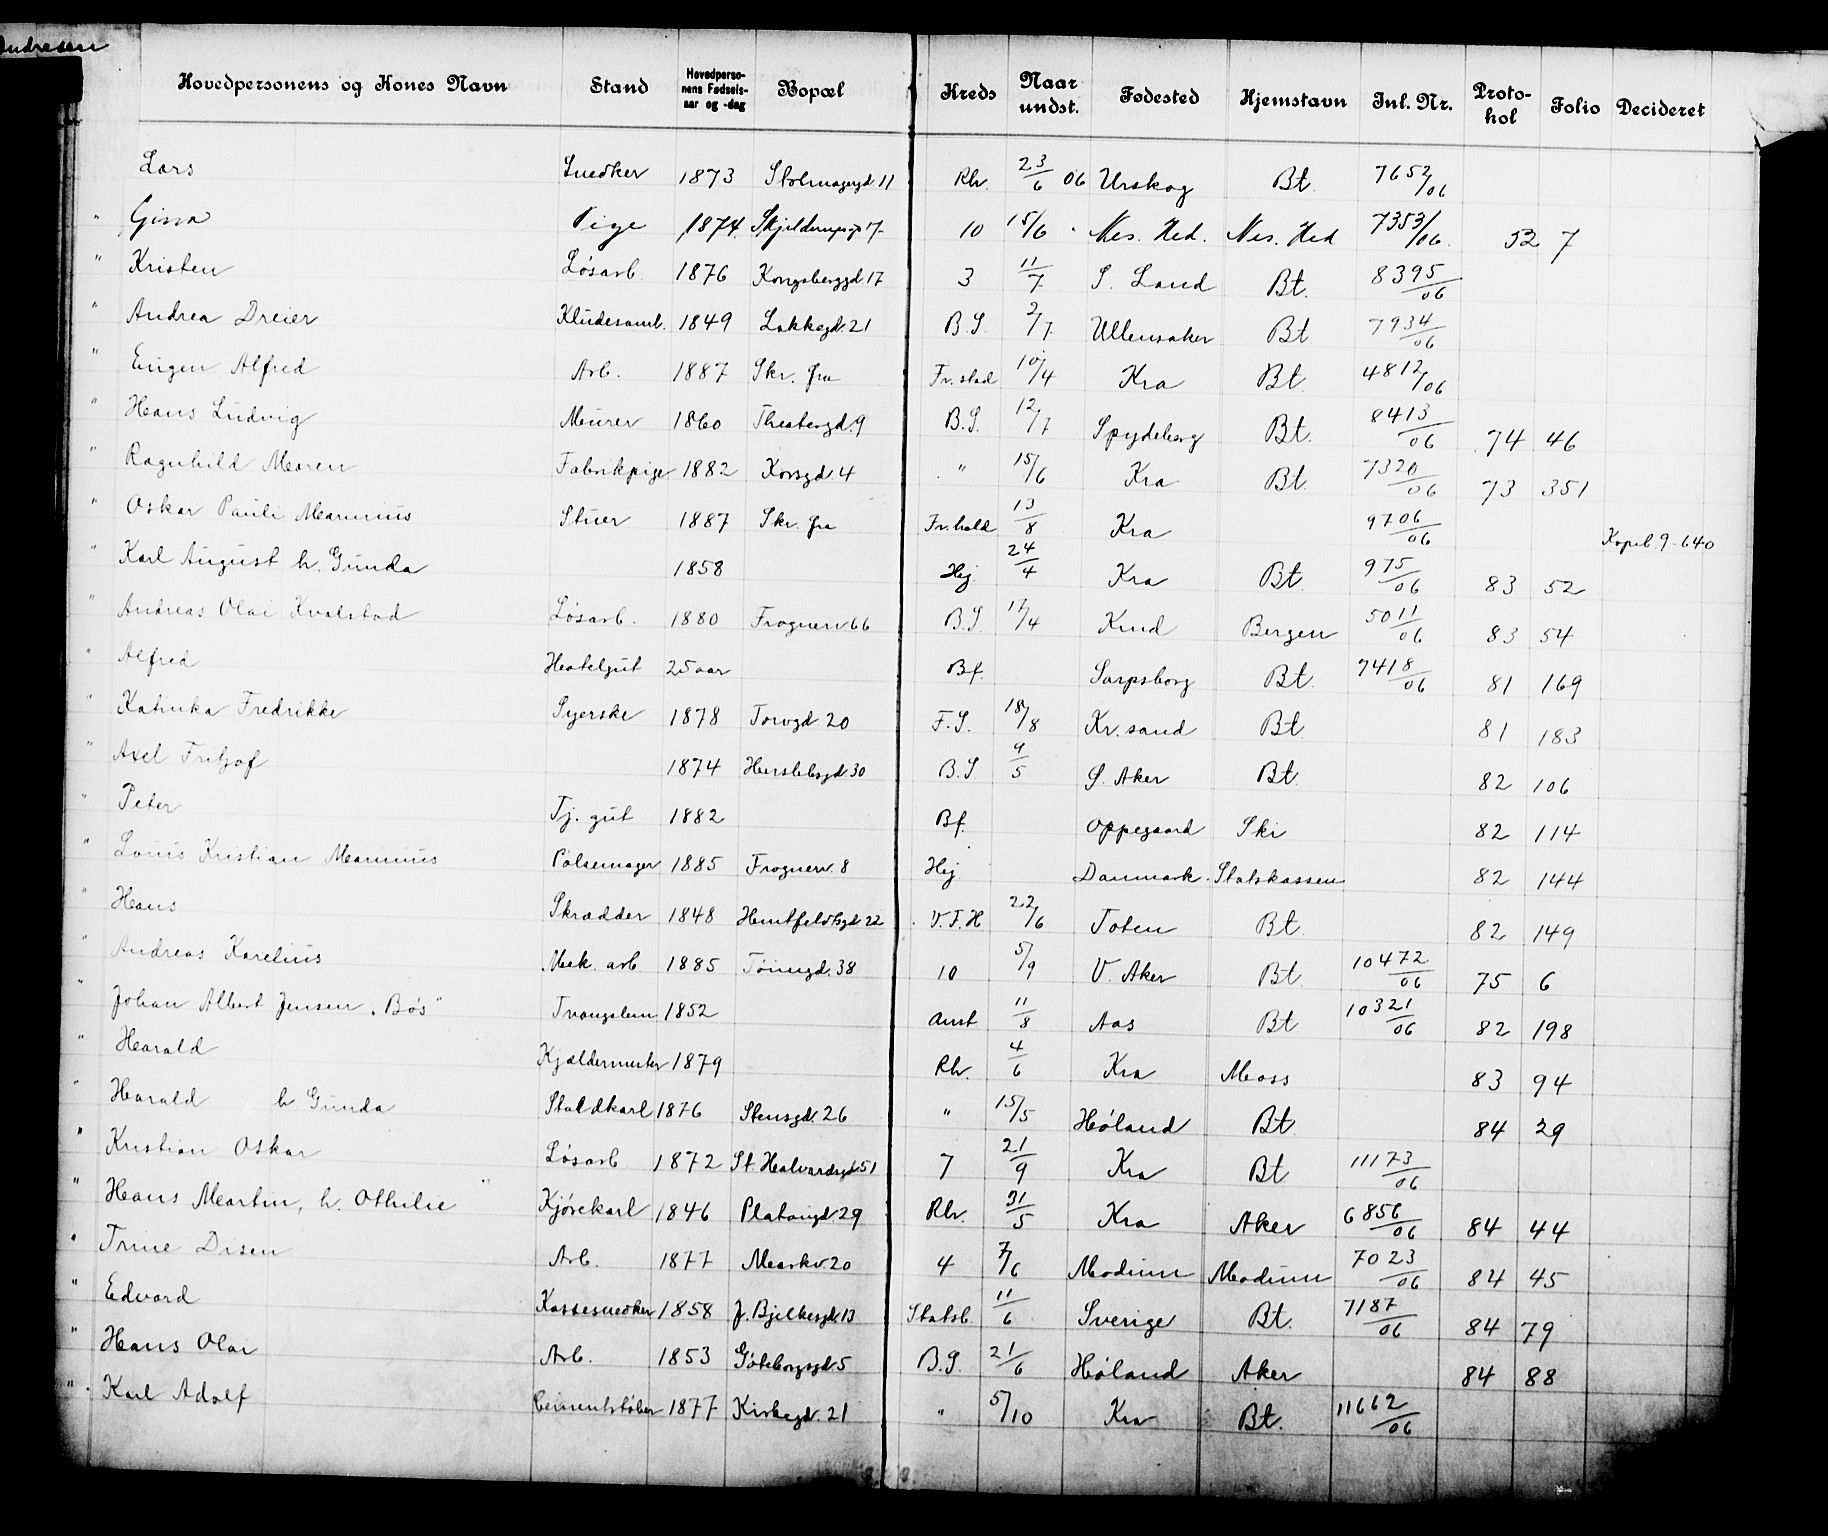 Andresen
Hovedpersonens og Kones Navn Stand Hovedpersonens Fødselsaar og -dag Bopæl Kreds Naar undst. Fødested Hjemstavn Inl. Nr. Protokol Folio Decideret
Lars Snedker 1873 Stolmagergd 11 Rh. 23/6 06 Urskog Bt. 7652/06
" Gina Pige 1874 Skjelderupsgd 17 10 15/6 " Nes. Hed. Nes. Hed 7353/06. 52 7
" Kristen Løsarb. 1876 Kongsberggd 17 3 11/7 S. Land Bt. 8395/06
" Andrea Dreier Kludesaml. 1849 Lakkegd. 21 B.S. 2/7 Ullensaker Bt 7934/06
" Eugen Alfred Arb. 1887 Skr. fra Fr.stad 10/4 Kra Bt. 4812/06
" Hans Ludvig Murer 1860 Theatergd. 9 B.S. 12/7 Spydeberg Bt. 8413/06 74 46
" Ragnhild Maren Fabrikpige 1882 Korsgd. 4 " 15/6 Kra Bt. 7320/06 73 351
" Oskar Pauli Marinius Stuer 1887 Skr. fra Fr.hald 13/8 Kra 9706/06 Kopib. 9-640
" Karl August h. Gunda 1858 Hej 24/4 Kra Bt. 975/06 83 52
" Andreas Olai Kvalstad Løsarb. 1880 Frognerv 66 B.S. 17/4 Kind Bergen 5011/06 83 54
" Alfred Hotelgut 25 aar Bf. Sarpsborg Bt. 7418/06 81 169
" Katinka Fredrikke Syerske 1878 Torvgd. 20 F.S. 18/8 Kr.sand Bt. 81 183
" Axel Fritjof 1874 Herslebsgd 30 B.S 9/5 S. Aker Bt. 82 106
" Peter Tj. gut 1882 Bf. Oppegaard Ski 82 114
" Louis Kristian Marinius Pølsemager 1885 Frognerv. 8 Hej Danmark. Statskassen 82 144
" Hans Skrædder 1848 Huitfeldtsgd 22 V.F.H 22/6 Toten Bt. 82 149
" Andreas Karelius Mek. arb 1885 Tøiengd. 38 10 5/9 V. Aker Bt. 10472/06 75 6
" Johan Albert Jensen "Bøs" Tvangslem 1852 Anst 11/8 Aas Bt 10321/06 82 198
" Harald Kjældermester 1879 Rh. 4/6 Kra Moss 83 94
" Harald h Gunda Staldkarl 1876 Stensgd. 26 " 15/5 Høland Bt. 84 29
" Kristian Oskar Løsarb 1872 St. Halvardsgd. 51 7 21/9 Kra Bt 11173/06
" Hans Martin, h. Othilie " Kjørekarl 1846 Platougd. 29 Rh. 31/5 Kra Aker 6856/06 84 44
" Trine Disen Arb. 1877 Markv. 20 4 7/6 Modum Modum 7023/06 84 45
" Edvard Kassesnedker 1858 J. Bjelkesgd. 13 Statsb. 11/6 Sverige Bt. 7187/06 84 79
" Hans Olai Arb. 1853 Gøteborgsgd. 5 B.S. 21/6 Høland Aker 84 88
" Karl Adolf Cementstøber 1877 Kirkegd. 21 " 5/10 Kra Bt. 11662/06